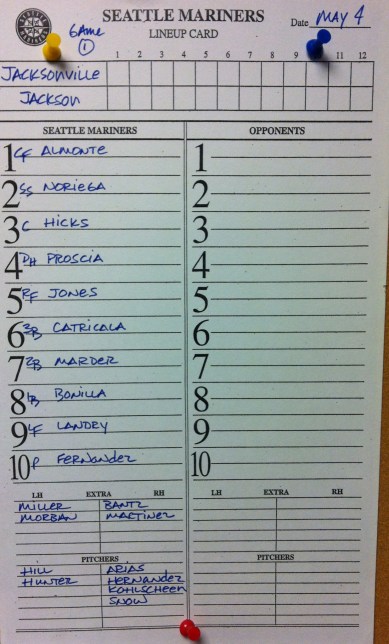 SEATTLE MARINERS
LINEUP CARD
Date MAY 4
GAME
1
1 2 3 4 5 6 7 8 9 11 12
JACKSONVILLE
JACKSON
SEATTLE MARINERS OPPONENTS
1 CF ALMONTE 1
2 SS NORIEGA 2
3 C HICKS 3
4 DH PROSCIA 4
5 RF JONES 5
6 3B CATRICALA 6
7 2B MARDER 7
8 1B BONILLA 8
9 LF LANDRY 9
10 P FERNANDEZ 10
LH EXTRA RH LH EXTRA RH
MILLER BANTZ
MORBAN MARTINEZ
PITCHERS PITCHERS
HILL ARIAS
HUNTER HERNANDEZ
KOHLSCHEEN
SNOW